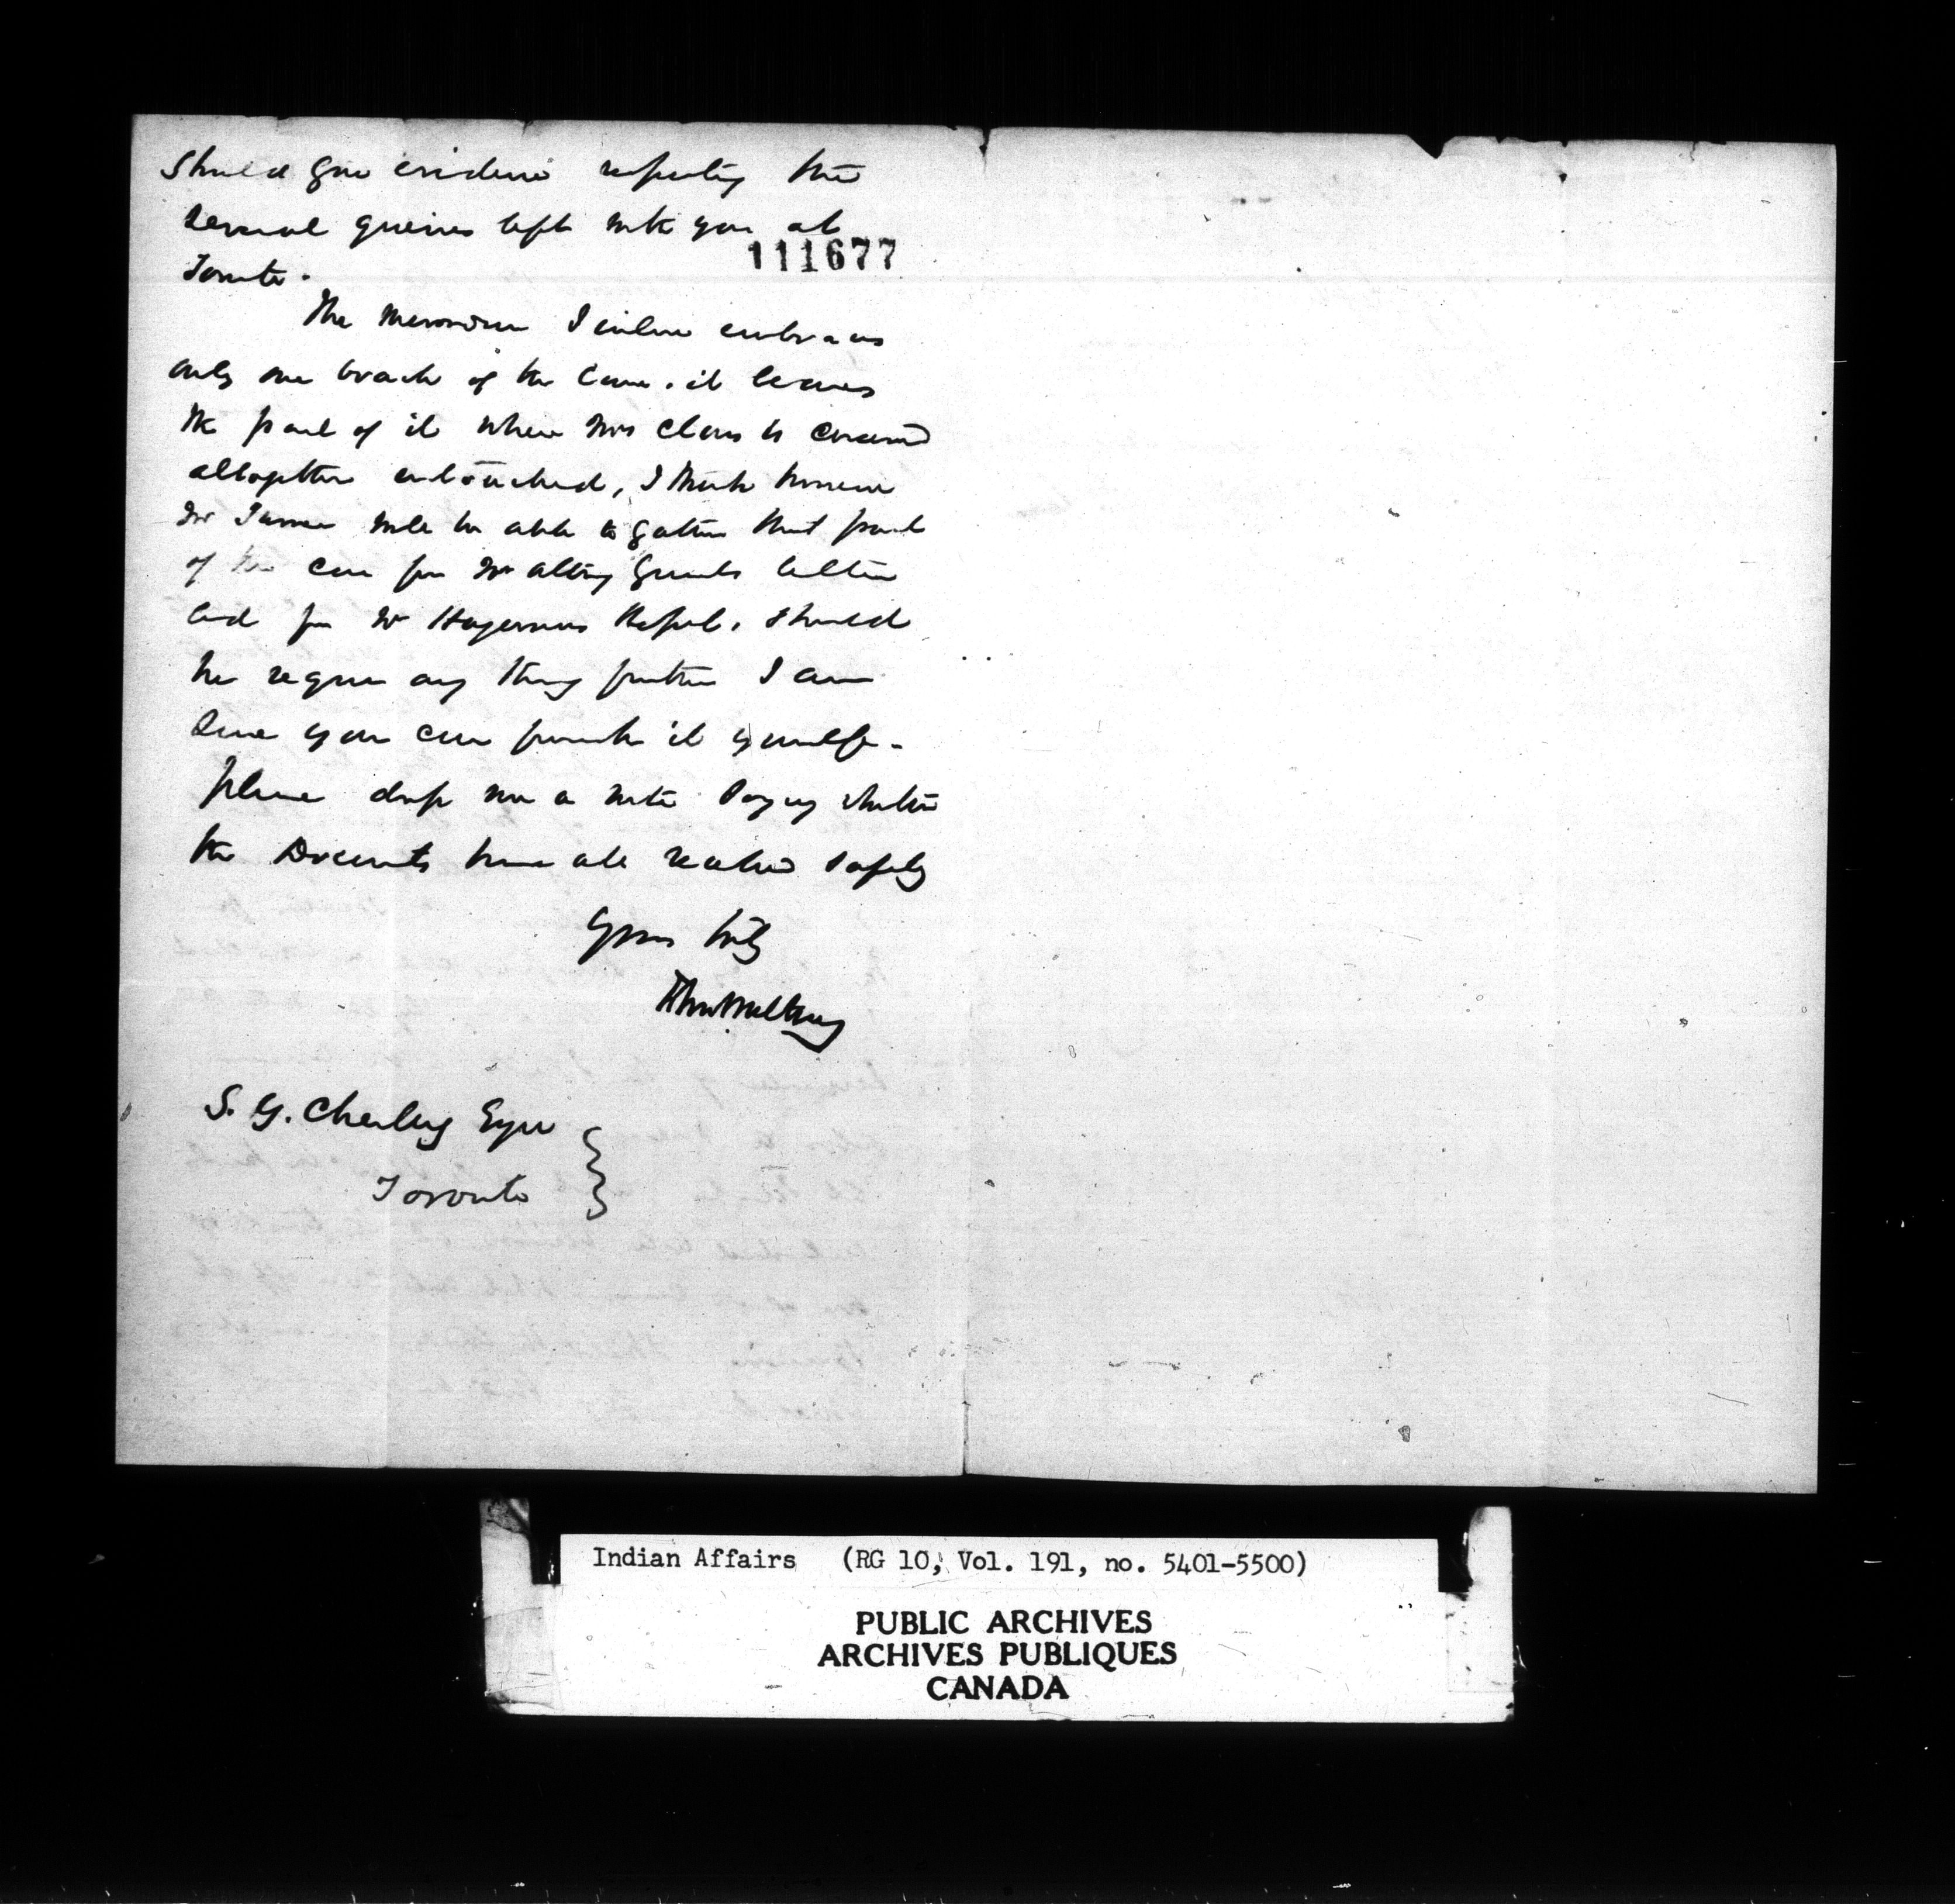 should give evidence respecting the
several queries left with you at
111677
Toronto.
The memorm I enclose embraces
only one branch of the Case. it leaves
the part of it where Mrs Claus is concerned
altogether untouched, I think however
Mr Turner will be able to gather that part
of the case from Mr Attorney Grants letter
and from Mr Hagermans Report. Should
he require any thing further I am
sure you can furnish it yourself.
please drop me a note saying whether
the Documents have all reached safely
Yours truly
S. Y. Chesley Esqre
Toronto
Indian Affairs (RG 10, Vol. 191, no. 5401-5500)
PUBLIC ARCHIVES
ARCHIVES PUBLIQUES
CANADA